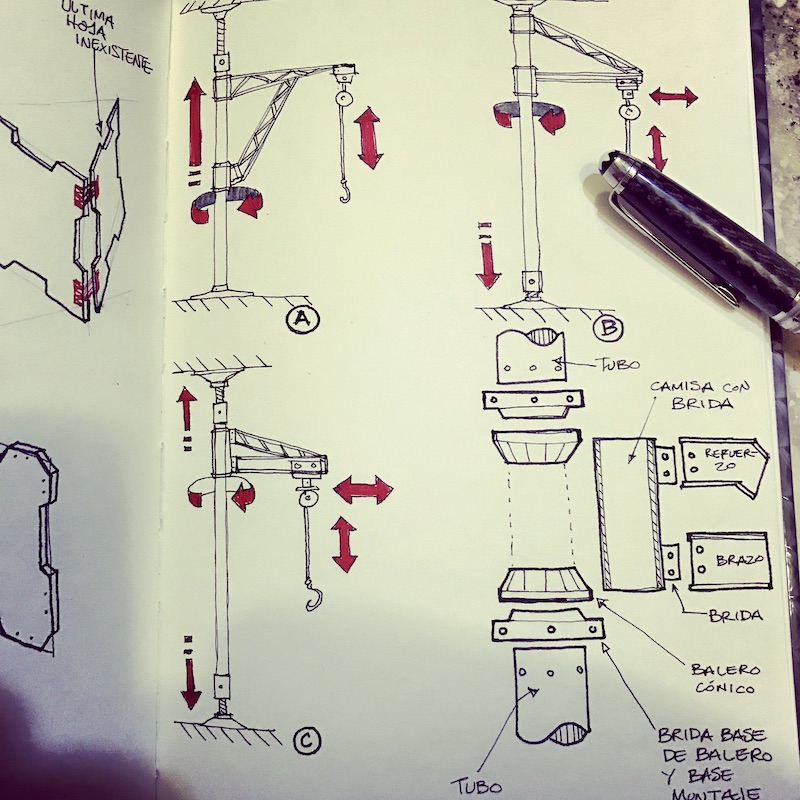 ULTIMA
HOJA
INEXISTENTE
A
B
TUBO
CAMISA CON
BRIDA
REFUER-
ZO
BRAZO
BRIDA
BALERO
CÓNICO
C
BRIDA BASE
DE BALERO
Y BASE
MONTAJE
TUBO